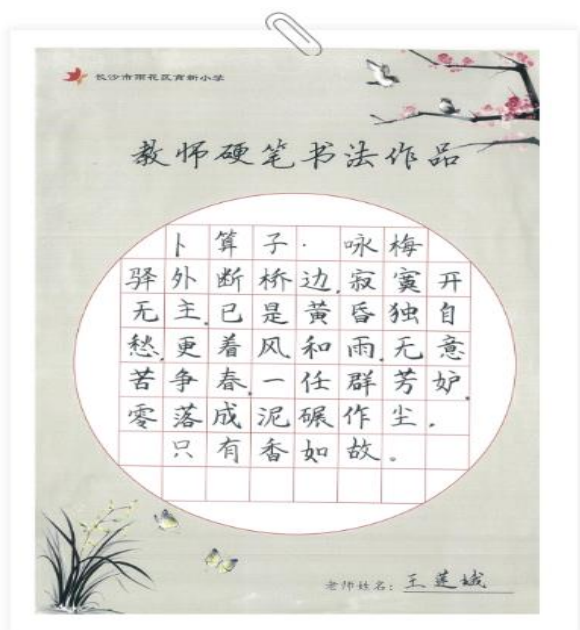 长沙市雨花区育新小学
教师硬笔书法作品
卜算子·咏梅
驿外断桥边,寂寞开
无主.已是黄昏独自
愁.更着风和雨.无意
苦争春.一任群芳妒.
零落成泥碾作尘.
只有香如故。
老师姓名:王莲城